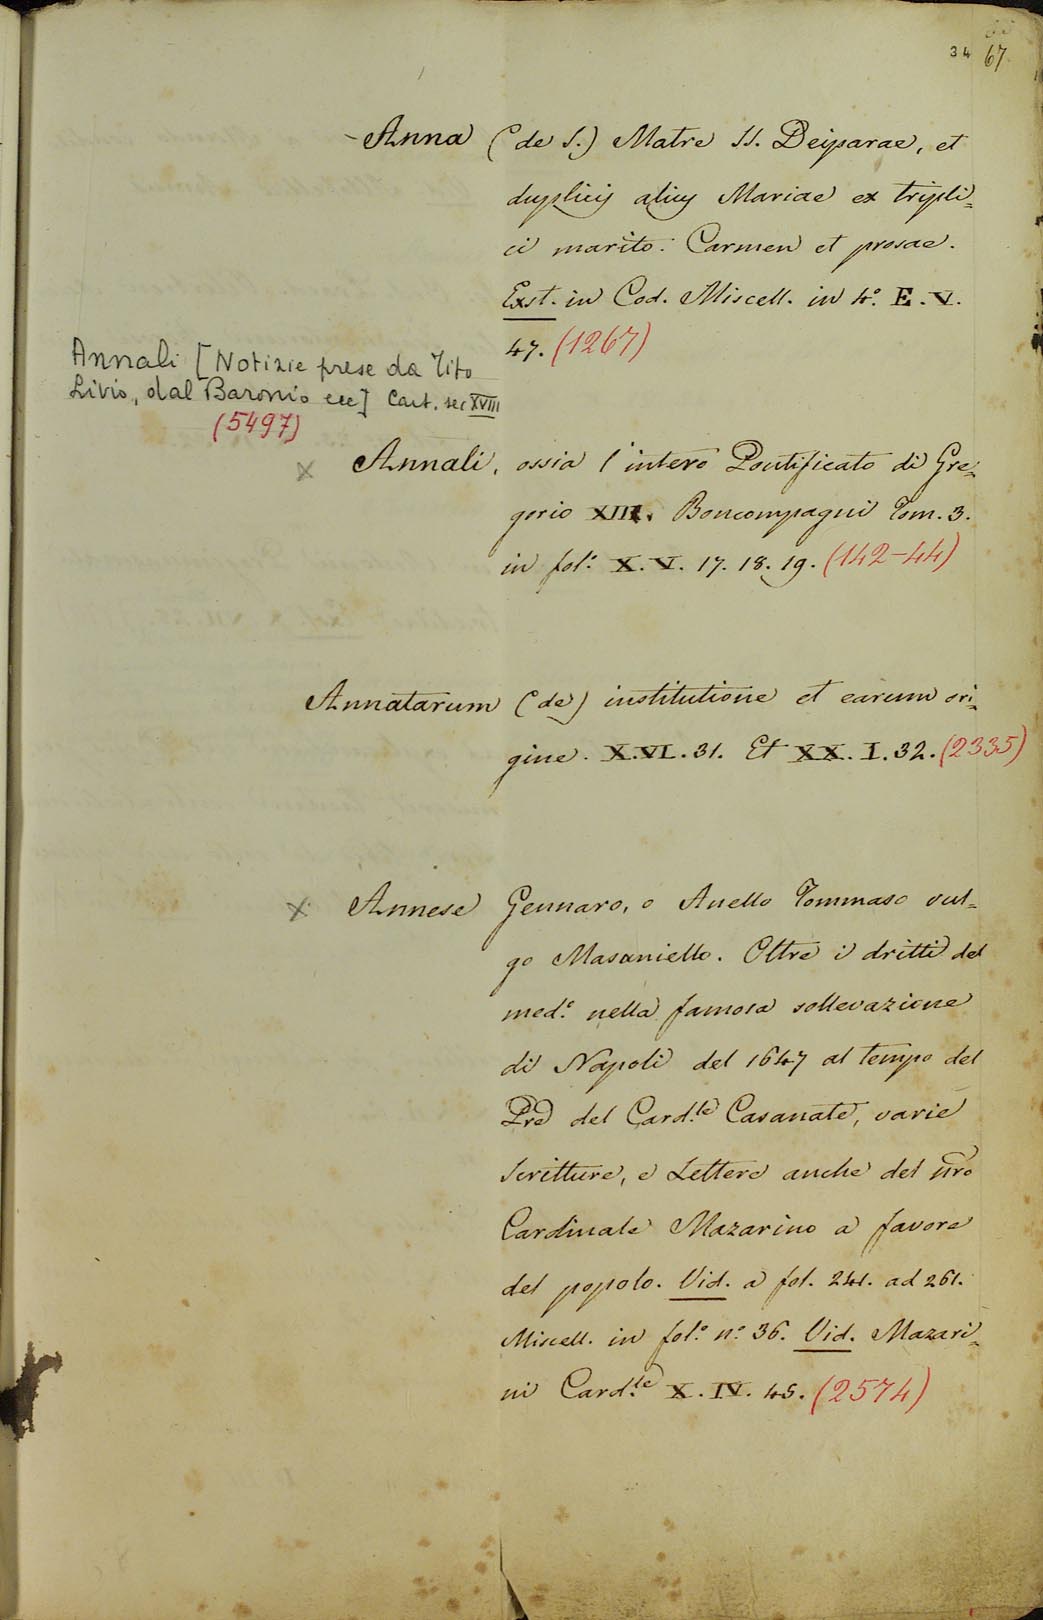 34 67
Anna (de S.) Matre SS. Deiparae, et
duplicis alius Mariae ex tripli=
ci marito. Carmen et prosae.
Exst. in Cod. Miscell. in 4.º E. V.
47. (1267)
Annali [Notizie prese da Tito
Livio, dal Baronio ecc] Cart. sec XVIII
(5497)
x Annali, ossia l'intero Pontificato di Gre=
gorio XIII. Boncompagni Tom. 3.
in fol.º X. V. 17. 18. 19. (142-44)
Annatarum (de) institutione et earum ori=
gine. X. VI. 31. Et XX. I. 32. (2335)
x Annese Gennaro, o Anello Tommaso vul=
go Masaniello. Oltre i dritti del
med.º nella famosa sollevazione
di Napoli del 1647 al tempo del
Pre del Card.le Casanate, varie
Scritture, e Lettere anche del nro
Cardinale Mazarino a favore
del popolo. Vid. a fol. 241. ad 261.
Miscell. in fol.º n.º 36. Vid. Mazari=
ni Card.le X. IV. 45. (2574)